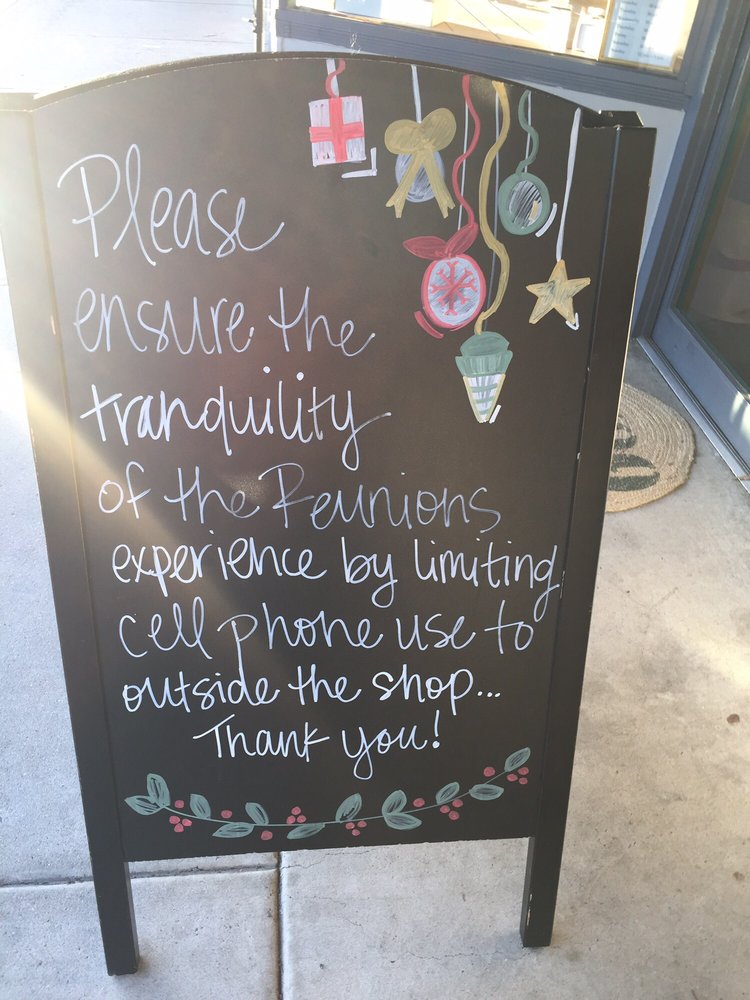 Please
ensure the
tranquility
of the Reunions
experience by limiting
cell phone use to
outside the shop...
Thank you!